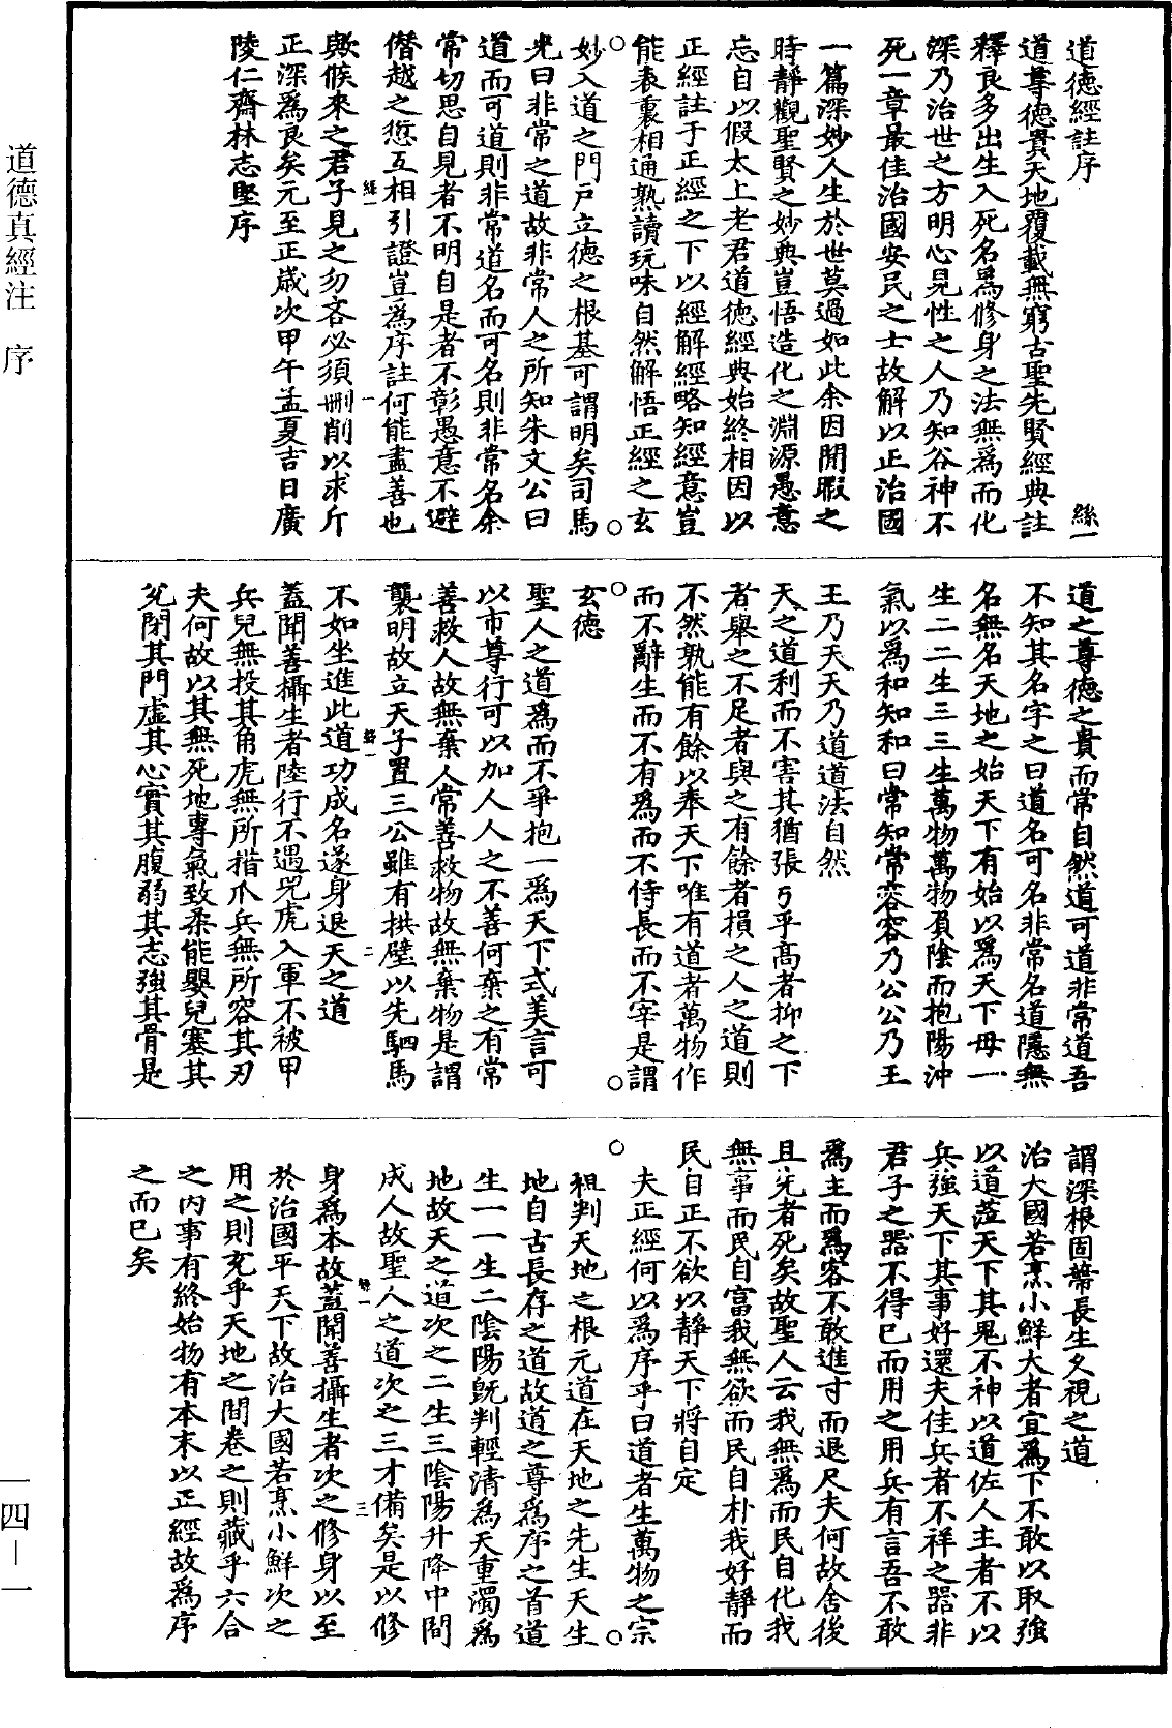 道德真經注　序
道德經註序　　絲一
道尊德貴天地覆載無窮古聖先賢經典註
釋良多出生入死名爲修身之法無爲而化
深乃治世之方明心見性之人乃知谷神不
死一章最佳治國安民之士故解以正治國
一篇深妙人生於世莫過如此余因閒暇之
時靜觀聖賢之妙典豈悟造化之淵源愚意
忘自以假太上老君道德經典始終相因以
正經註于正經之下以經解經略知經意豈
能表裏相通熟讀玩味自然解悟正經之玄
妙入道之門戶立德之根基可謂明矣司馬
光曰非常之道故非常人之所知朱文公曰
道而可道則非常道名而可名則非常名余
常切思自見者不明自是者不彰愚意不避
僭越之愆互相引證豈爲序註何能盡善也
絲一　一
歟候來之君子見之勿吝必須刪削以求斤
正深爲良矣元至正歲次甲午孟夏吉日廣
陵仁齊林志堅序
道之尊德之貴而常自然道可道非常道吾
不知其名字之曰道名可名非常名道隱無
名無名天地之始天下有始以爲天下母一
生二二生三三生萬物萬物負陰而抱陽沖
氣以爲和知和曰常知常容容乃公公乃王
王乃天天乃道道法自然
天之道利而不害其猶張弓乎高者抑之下
者舉之不足者與之有餘者損之人之道則
不然孰能有餘以奉天下唯有道者萬物作
而不辭生而不有爲而不恃長而不宰是謂
玄德
聖人之道爲而不爭抱一爲天下式美言可
以市尊行可以加人人之不善何棄之有常
善救人故無棄人常善救物故無棄物是謂
襲明故立天子置三公雖有拱璧以先駟馬
絲一　二
不如坐進此道功成名遂身退天之道
蓋聞善攝生者陸行不遇兕虎入軍不被甲
兵兕無投其角虎無所措爪兵無所容其刃
夫何故以其無死地專氣致柔能嬰兒塞其
兌閉其門虛其心實其腹弱其志強其骨是
謂深根固蔕長生久視之道
治大國若烹小鮮大者宜爲下不敢以取強
以道蒞天下其鬼不神以道佐人主者不以
兵強天下其事好還夫佳兵者不祥之器非
君子之器不得已而用之用兵有言吾不敢
爲主而爲客不敢進寸而退尺夫何故舍後
且先者死矣故聖人云我無爲而民自化我
無事而民自富我無欲而民自朴我好靜而
民自正不欲以靜天下將自定
夫正經何以爲序乎曰道者生萬物之宗
祖判天地之根元道在天地之先生天生
地自古長存之道故道之尊爲序之首道
生一一生二陰陽既判輕清爲天重濁爲
地故天之道次之二生三陰陽升降中間
成人故聖人之道次之三才備矣是以修
絲一　三
身爲本故蓋聞善攝生者次之修身以至
於治國平天下故治大國若烹小鮮次之
用之則充乎天地之間卷之則藏乎六合
之內事有終始物有本末以正經故爲序
之而已矣
一四－一